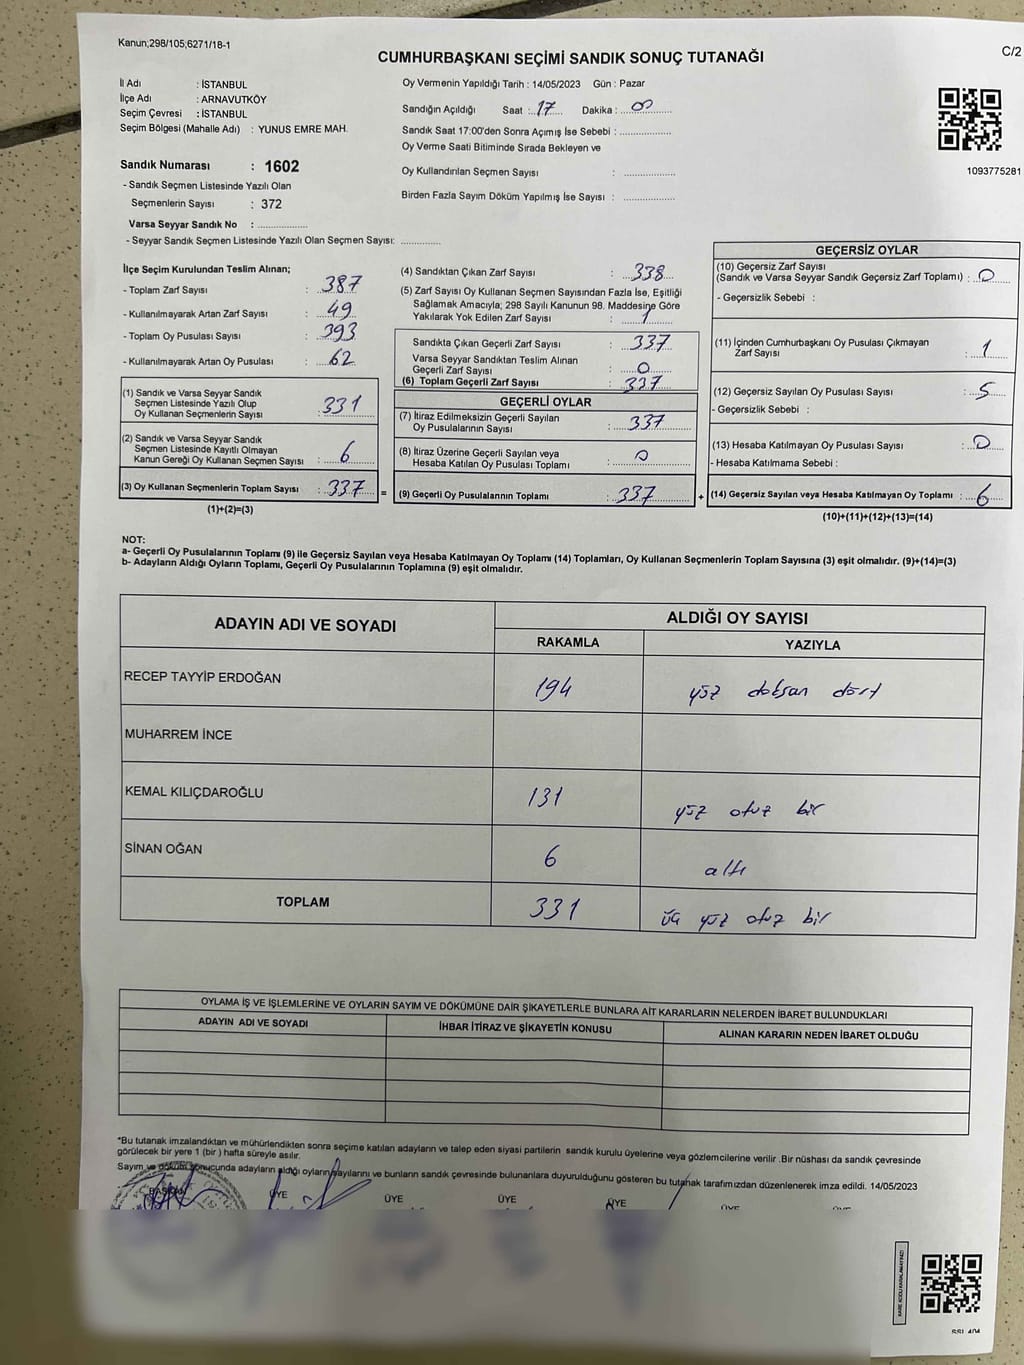 Kanun;298/105;6271/18-1
C/2
CUMHURBAŞKANI SEÇİMİ SANDIK SONUÇ TUTANAĞI
İl Adı : İSTANBUL
İlçe Adı : ARNAVUTKÖY
Seçim Çevresi : İSTANBUL
Seçim Bölgesi (Mahalle Adı) : YUNUS EMRE MAH.
Sandık Numarası : 1602
- Sandık Seçmen Listesinde Yazılı Olan
Seçmenlerin Sayısı : 372
Varsa Seyyar Sandık No : ..................
- Seyyar Sandık Seçmen Listesinde Yazılı Olan Seçmen Sayısı: ..............
Oy Vermenin Yapıldığı Tarih : 14/05/2023 Gün : Pazar
Sandığın Açıldığı Saat : 17 Dakika : 00
Sandık Saat 17:00'den Sonra Açımış İse Sebebi : ..................
Oy Verme Saati Bitiminde Sırada Bekleyen ve
Oy Kullandırılan Seçmen Sayısı : ..................
Birden Fazla Sayım Döküm Yapılmış İse Sayısı : ..................
1093775281
İlçe Seçim Kurulundan Teslim Alınan;
- Toplam Zarf Sayısı : 387
- Kullanılmayarak Artan Zarf Sayısı : 49
- Toplam Oy Pusulası Sayısı : 393
- Kullanılmayarak Artan Oy Pusulası : 62
(1) Sandık ve Varsa Seyyar Sandık
Seçmen Listesinde Yazılı Olup
Oy Kullanan Seçmenlerin Sayısı : 331
(2) Sandık ve Varsa Seyyar Sandık
Seçmen Listesinde Kayıtlı Olmayan
Kanun Gereği Oy Kullanan Seçmen Sayısı : 6
(3) Oy Kullanan Seçmenlerin Toplam Sayısı : 337
(1)+(2)=(3)
=
(4) Sandıktan Çıkan Zarf Sayısı : 338
(5) Zarf Sayısı Oy Kullanan Seçmen Sayısından Fazla İse, Eşitliği
Sağlamak Amacıyla; 298 Sayılı Kanunun 98. Maddesine Göre
Yakılarak Yok Edilen Zarf Sayısı : 1
Sandıkta Çıkan Geçerli Zarf Sayısı : 337
Varsa Seyyar Sandıktan Teslim Alınan
Geçerli Zarf Sayısı : 0
(6) Toplam Geçerli Zarf Sayısı : 337
GEÇERLİ OYLAR
(7) İtiraz Edilmeksizin Geçerli Sayılan
Oy Pusulalarının Sayısı : 337
(8) İtiraz Üzerine Geçerli Sayılan veya
Hesaba Katılan Oy Pusulası Toplamı : 0
(9) Geçerli Oy Pusulalarının Toplamı : 337
+
GEÇERSİZ OYLAR
(10) Geçersiz Zarf Sayısı
(Sandık ve Varsa Seyyar Sandık Geçersiz Zarf Toplamı) : 0
- Geçersizlik Sebebi :
(11) İçinden Cumhurbaşkanı Oy Pusulası Çıkmayan
Zarf Sayısı : 1
(12) Geçersiz Sayılan Oy Pusulası Sayısı : 5
- Geçersizlik Sebebi :
(13) Hesaba Katılmayan Oy Pusulası Sayısı : 0
- Hesaba Katılmama Sebebi :
(14) Geçersiz Sayılan veya Hesaba Katılmayan Oy Toplamı : 6
(10)+(11)+(12)+(13)=(14)
NOT:
a- Geçerli Oy Pusulalarının Toplamı (9) ile Geçersiz Sayılan veya Hesaba Katılmayan Oy Toplamı (14) Toplamları, Oy Kullanan Seçmenlerin Toplam Sayısına (3) eşit olmalıdır. (9)+(14)=(3)
b- Adayların Aldığı Oyların Toplamı, Geçerli Oy Pusulalarının Toplamına (9) eşit olmalıdır.
ADAYIN ADI VE SOYADI ALDIĞI OY SAYISI
RAKAMLA YAZIYLA
RECEP TAYYİP ERDOĞAN 194 yüz doksan dört
MUHARREM İNCE
KEMAL KILIÇDAROĞLU 131 yüz otuz bir
SİNAN OĞAN 6 altı
TOPLAM 331 üç yüz otuz bir
OYLAMA İŞ VE İŞLEMLERİNE VE OYLARIN SAYIM VE DÖKÜMÜNE DAİR ŞİKAYETLERLE BUNLARA AİT KARARLARIN NELERDEN İBARET BULUNDUKLARI
ADAYIN ADI VE SOYADI İHBAR İTİRAZ VE ŞİKAYETİN KONUSU ALINAN KARARIN NEDEN İBARET OLDUĞU
*Bu tutanak imzalandıktan ve mühürlendikten sonra seçime katılan adayların ve talep eden siyasi partilerin sandık kurulu üyelerine veya gözlemcilerine verilir .Bir nüshası da sandık çevresinde
görülecek bir yere 1 (bir ) hafta süreyle asılır.
Sayım ve döküm sonucunda adayların aldığı oyların sayılarını ve bunların sandık çevresinde bulunanlara duyurulduğunu gösteren bu tutanak tarafımızdan düzenlenerek imza edildi. 14/05/2023
BAŞKAN ÜYE ÜYE ÜYE ÜYE ÜYE ÜYE